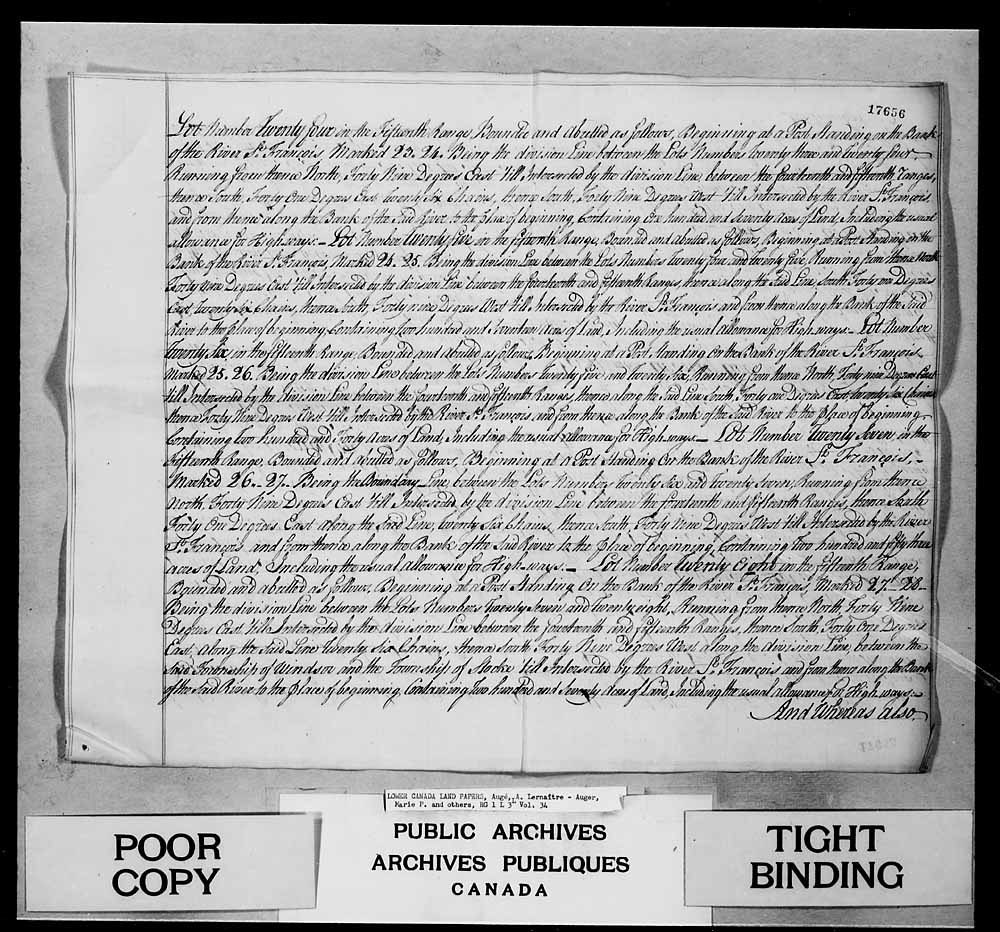 17656
Lot Number Twenty four in the Fifteenth Range, Bounded and abutted as follows, Beginning at a Post Standing on the Bank
of the River St. Francis Marked 23. 24. Being the division Line between the Lots Numbers Twenty three and twenty four
Running from thence North, Forty Nine Degrees East till Intersected by the division Line, between the fourteenth and fifteenth Ranges,
thence South, Forty One Degrees East twenty Six Chains, thence South, Forty Nine Degrees West till Intersected by the River St. Francis,
and from thence along the Bank of the Said River to the place of beginning, Containing One hundred and Seventy Acres of Land, Including the usual
allowance for Highways - Lot Number Twenty five in the fifteenth Range, Bounded and abutted as follows, Beginning at a Post Standing on the
Bank of the River St. Francis Marked 24. 25. Being the division Line between the Lots Numbers twenty four and twenty five, Running from thence North
Forty Nine Degrees East till Intersected by the division Line between the fourteenth and fifteenth Ranges, thence along the Said Line, South Forty One Degrees
East, twenty six Chains, thence South, Forty nine Degrees West till Intersected by the River St. Francis and from thence along the Bank of the Said
River to the place of beginning, Containing two hundred and fourteen Acres of Land, Including the usual allowance for High ways - Lot Number
twenty Six, in the fifteenth Range, Bounded and abutted as follows, Beginning at a Post Standing On the Bank of the River St. Francis
Marked 25. 26. Being the division Line between the Lots Numbers Twenty Five and twenty Six, Running from thence North Forty nine Degrees East
till Intersected by the Division Line between the fourteenth and fifteenth Ranges, thence along the Said Line South Forty one Degrees East twenty Six Chains
thence Forty Nine Degrees East till Intersected by the River St. Francis, and from thence along the Bank of the Said River to the place of beginning,
Containing two hundred and Forty Acres of Land, Including the usual allowance for High ways - Lot Number Twenty Seven, in the
Fifteenth Range, Bounded and abutted as follows, Beginning at a Post Standing On the Bank of the River St. Francis, -
Marked 26. - 27. Being the Boundary Line between the Lots Numbers twenty six and twenty seven, Running from thence
North Forty Nine Degrees East till Intersected, by the division Line between the fourteenth and fifteenth Ranges, thence South
Forty One Degrees, East along the Said Line, twenty Six Chains, thence South, Forty Nine Degrees West till Intersected by the River
St. Francis and from thence along the Bank of the Said River to the place of beginning, Containing Two hundred and fifty three
Acres of Land Including the usual allowance for High-ways. - Lot Number Twenty Eight in the fifteenth Range,
Bounded and abutted as follows, Beginning at a Post Standing On the Bank of the River St. Francis, Marked 27. 28. -
Being the division Line between the Lots Numbers twenty Seven and twenty eight, Running from thence North, Forty Nine
Degrees East till Intersected by the division Line between the fourteenth and fifteenth Ranges, thence South, Forty One Degrees
East, along the Said Line twenty Six Chains, thence South Forty Nine Degrees West along the division Line, between the
Said Township of Windsor and the Township of Stoke till Intersected by the River St. Francis and from thence along the Bank
of the Said River to the place of beginning, Containing Two hundred and Seventy Acres of Land, Including the usual allowance for High ways -
And Whereas Also
LOWER CANADA LAND PAPERS, Augé, A. Lemaître - Auger,
Marie P. and others, RG 1 L 3L Vol. 34
POOR
COPY
PUBLIC ARCHIVES
ARCHIVES PUBLIQUES
CANADA
TIGHT
BINDING